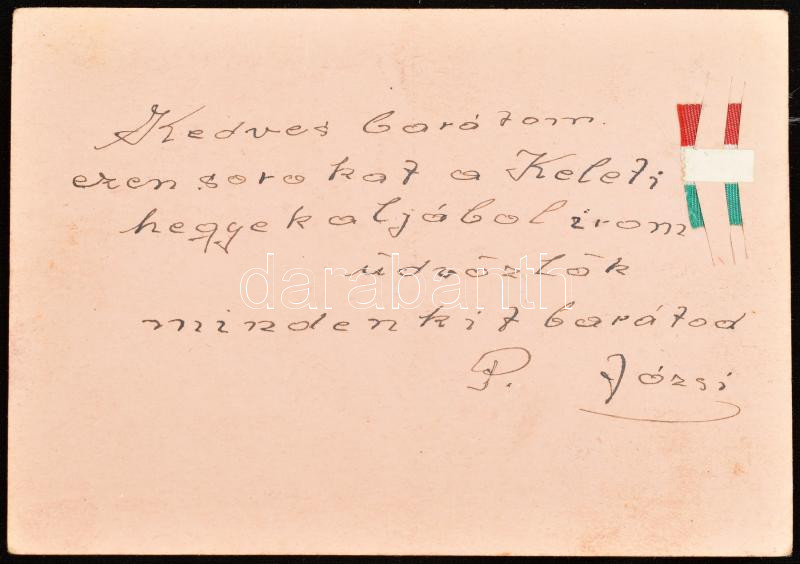 Kedves barátom.
ezen sorokat a Keleti
hegyek aljábol irom
üdvözlök
mindenkit barátod
P. Józsi
darabanth